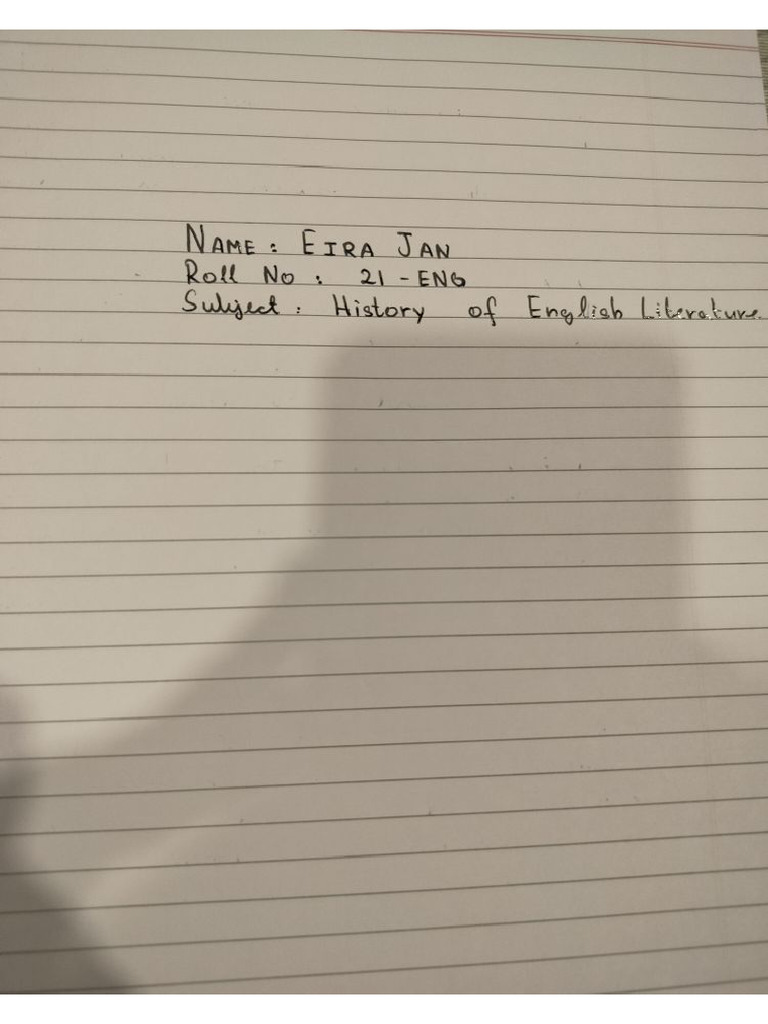 NAME : EIRA JAN
Roll No : 21 - ENG
Subject : History of English Literature.